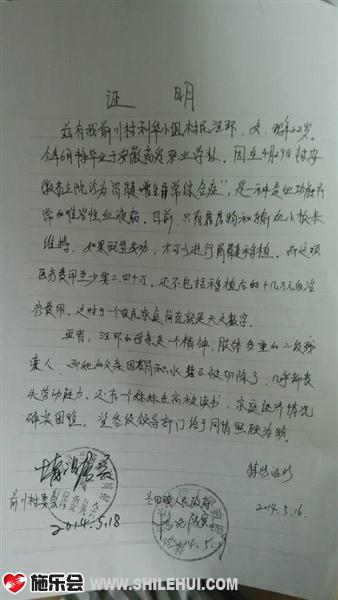 证 明
兹有我前川村利华小组村民汪环，女，现年22岁。
今年6月将毕业于安徽商贸职业学校。因在4月29日被安
徽省立院诊为“骨髓增生异常综合症”，是一种造血功能异
常的难治性血液病。目前，只有靠药物和输血小板来
维持。如果配型成功，才可以进行骨髓移植。而这项
医疗费用至少要三、四十万。还不包括移植后的十几万元的治
疗费用。这对于一个农民家庭简直就是天文数字。
并且，汪环的母亲是一个精神、肢体多重的二级残
疾人，而她的父亲因肾积水 已被切除了，几乎都丧
失劳动能力。还有个妹妹在高校读书，家庭经济情况
确实困难。望各级领导部门给予同情照顾为盼。
特此证明
情况属实
前川村委会
2014.5.18
兰田镇人民政府
情况属实
2014.5.16
施乐会 WWW.SHILEHUI.COM